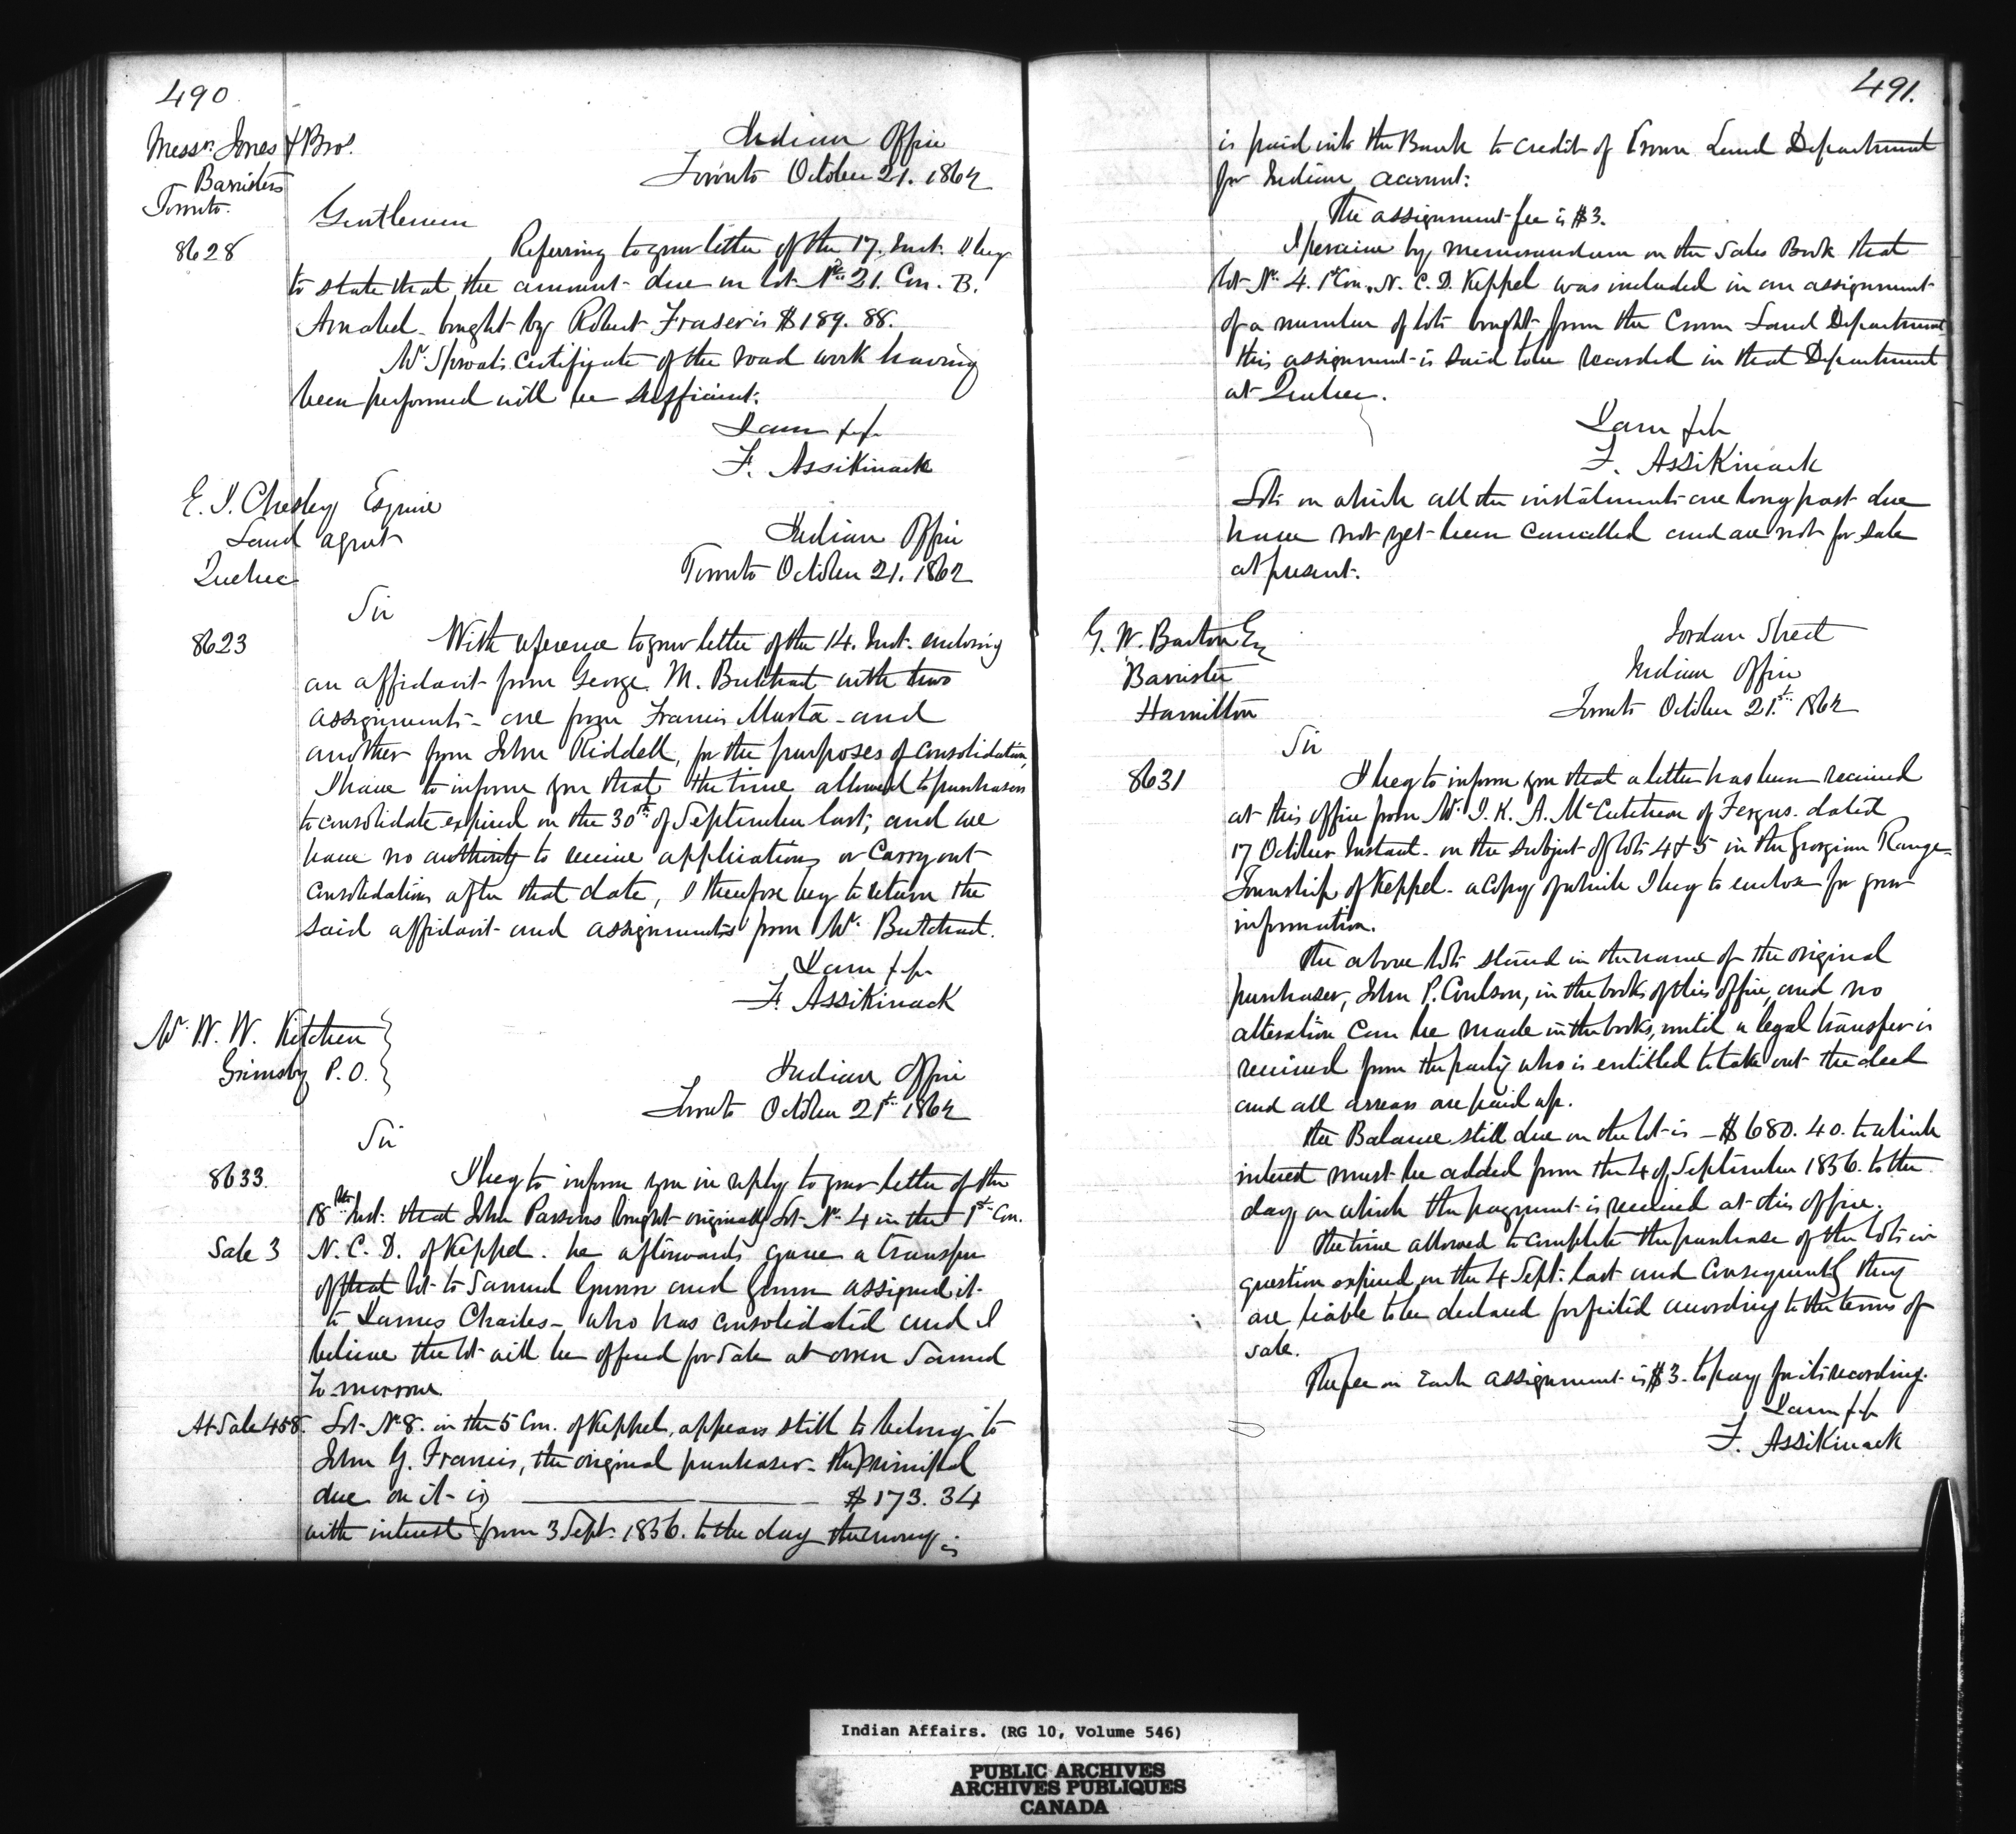 490
Messrs. Jones & Bros.
Barristers
Toronto.
Indian Office
Toronto October 21. 1862
Gentlemen
8628
Referring to your letter of the 17. Inst. I beg
to state that the amount due on lot No. 21. Con. B.
Amabel bought by Robert Fraser is $189.88.
Mr. Sproat's certificate of the road work having
been performed will be sufficient.
I am &c
F. Assikinack
E. I. Chesley Esquire
Land agent
Quebec
Indian Office
Toronto October 21. 1862
Sir
8623
With reference to your letter of the 14. Inst. enclosing
an affidavit from George M. Butchart with two
assignments - one from Francis - and
another from John Riddell, for the purposes of consolidation,
I have to inform you that the time allowed to purchasers
to consolidate expired on the 30th of September last, and we
have no authority to receive applications or carry out
consolidations after that date, I therefore beg to return the
said affidavit and assignments from Mr. Butchart.
I am &c
F. Assikinack
Mr. W. W. Kitchen
Grimsby P.O.
Indian Office
Toronto October 21st 1862
Sir
8633.
I beg to inform you in reply to your letter of the
18th Inst. that John Parsons bought originally Lot No. 4 in the 1st Con.
Sale 3
N. C. D. of Keppel. he afterwards gave a transfer
of that lot to Samuel Gunn and Gunn assigned it
to James Charles - who has consolidated and I
believe the lot will be offered for sale at Owen Sound
to morrow.
At Sale 458.
Lot No 8. in the 5 Con. of Keppel, appears still to belong to
John G. Francis, the original purchaser - the principal
due on it is $173.34
with interest from 3 Sept. 1856. to the day the money is
491.
is paid into the Bank to credit of Crown Land Department
for Indian account:
The assignment fee is $3.
I perceive by memorandum on the Sales Book that
lot No. 4. 1st Con. N. C. D. Keppel was included in an assignment
of a number of lots bought from the Crown Land Department
this assignment is said to be recorded in that Department
at Quebec.
I am &c
F. Assikinack
Lots on which all the instalments are long past due
have not yet been cancelled and are not for sale
at present.
G. W. Burton Esq
Barrister
Hamilton
Jordan Street
Indian Office
Toronto October 21st 1862
Sir
8631
I beg to inform you that a letter has been received
at this office from Mr. I. K. A. McCutcheon of Fergus. dated
17 October Instant - on the subject of lots 4 & 5 in the Georgian Range
Township of Keppel - a copy of which I beg to enclose for your
information.
The above lots stand in the name of the original
purchaser, John P. Coulson, in the books of this office, and no
alteration can be made in the books, until a legal transfer is
received from the party who is entitled to take out the deed
and all arrears are paid up.
The Balance still due on the lot is - $680.40. to which
interest must be added from the 4 of September 1856. to the
day on which the payment is received at this office.
The time allowed to complete the purchase of the lots in
question expired on the 4 Sept. last and consequently they
are liable to be declared forfeited according to the terms of
sale.
The fee on each assignment is $3. to pay for its recording.
I am &c
F. Assikinack
Indian Affairs. (RG 10, Volume 546)
PUBLIC ARCHIVES
ARCHIVES PUBLIQUES
CANADA